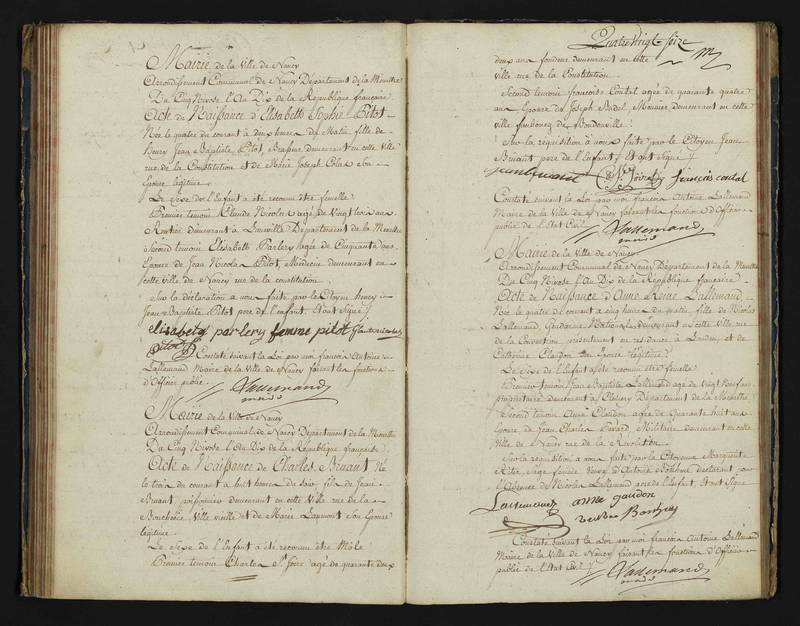 Mairie de la Ville de Nancy
Arrondissement Communal de Nancy Département de la Meurthe
Du Cinq Nivose l'An Dix de la République française
Acte de Naissance d'Elisabeth Sophie Pitot
Née le quatre du courant à deux heures du Matin fille de
Henry Jean Baptiste Pitot, demeurant en cette Ville
rue de la Constitution et de Marie Joseph Colas son
Epouse légitime
Le Sexe de l'Enfant a été reconnu être femelle
Premier temoin Claude Nicolas agé de Vingt trois ans
Rentier demeurant à Luneville Département de la Meurthe
Second temoin Elisabeth Parlery agée de Cinquante ans
Epouse de Jean Nicolas Pitot, Medecin demeurant en
cette Ville de Nancy rue de la constitution
Sur la déclaration a nous faite par le Citoyen henry
Jean Baptiste Pitot pere de l'enfant. Et ont Signé
elisabetq parlery femme pitot
pitot
Constaté suivant la Loi par moi françois Antoine
Lallemand Maire de la Ville de Nancy faisant les fonctions
d'Officier public
Lallemand
Mairie de la Ville de Nancy
Arrondissement Communal de Nancy Département de la Meurthe
Du Cinq Nivose l'An Dix de la République française
Acte de Naissance de Charles, Bruant Né
le trois du courant à huit heures du soir, fils de Jean
Bruant, poissonnier demeurant en cette Ville rue de la
Boucherie Ville vieille et de Marie Laumont son Epouse
legitime
Le Sexe de l'Enfant a été reconnu être Mâle
Premier temoin Charles St Joire agé de quarante deux
Quatre Vingt Seize
deux ans fondeur demeurant en cette
Ville rue de la Constitution
Second temoin françoise Contal agée de quarante quatre
ans Epouse de Joseph Bidot, Menuisier demeurant en cette
ville faubourg de Boudonville
Sur la requisition à nous faite par le Citoyen Jean
Bruant pere de l'enfant, Et ont Signé
Jean bruant françois contal
Constaté suivant la Loi par moi françois Antoine Lallemand
Maire de la Ville de Nancy faisant les fonctions d'Officier
public de l'Etat Civil
Lallemand
Mairie de la Ville de Nancy
Arrondissement Communal de Nancy Département de la Meurthe
Du Cinq Nivose l'An Dix de la République française
Acte de Naissance d'Anne Reine Lallemand
Née le quatre du courant a cinq heures du matin, fille de Nicolas
Lallemand, Gendarme National demeurant en cette Ville rue
de la Convention, présentement en residence à Londun et de
Catherine Claudon son Epouse légitime
Le Sexe de l'Enfant a été reconnu être femelle
Premier temoin Jean Baptiste Lallemand agé de Vingt Neuf ans
proprietaire demeurant à Département de la Meurthe
Second temoin Anne Claudon agée de Quarante huit ans
Epouse de Jean Charles Militaire demeurant en cette
Ville de Nancy rue de la Revolution
Sur la requisition a nous faite par la Citoyenne Marguerite
Sage femme Veuve d'Antoine declarant pour
l'absence de Nicolas Lallemand pere de l'enfant, Et ont Signé
Lallemand anne gaudon
Constaté suivant la Loi par moi françois Antoine Lallemand
Maire de la Ville de Nancy faisant les fonctions d'Officier
public de l'Etat Civil
Lallemand